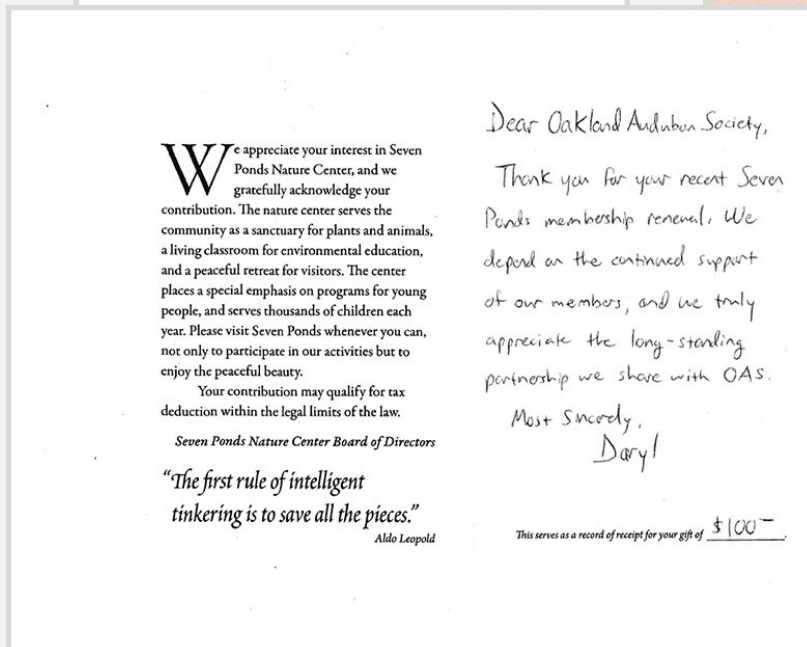 We appreciate your interest in Seven
Ponds Nature Center, and we
gratefully acknowledge your
contribution. The nature center serves the
community as a sanctuary for plants and animals,
a living classroom for environmental education,
and a peaceful retreat for visitors. The center
places a special emphasis on programs for young
people, and serves thousands of children each
year. Please visit Seven Ponds whenever you can,
not only to participate in our activities but to
enjoy the peaceful beauty.
Your contribution may qualify for tax
deduction within the legal limits of the law.
Seven Ponds Nature Center Board of Directors
“The first rule of intelligent
tinkering is to save all the pieces.”
Aldo Leopold
Dear Oakland Audubon Society,
Thank you for your recent Seven
Ponds membership renewal. We
depend on the continued support
of our members, and we truly
appreciate the long-standing
partnership we share with OAS.
Most Sincerely,
Daryl
This serves as a record of receipt for your gift of $100—.